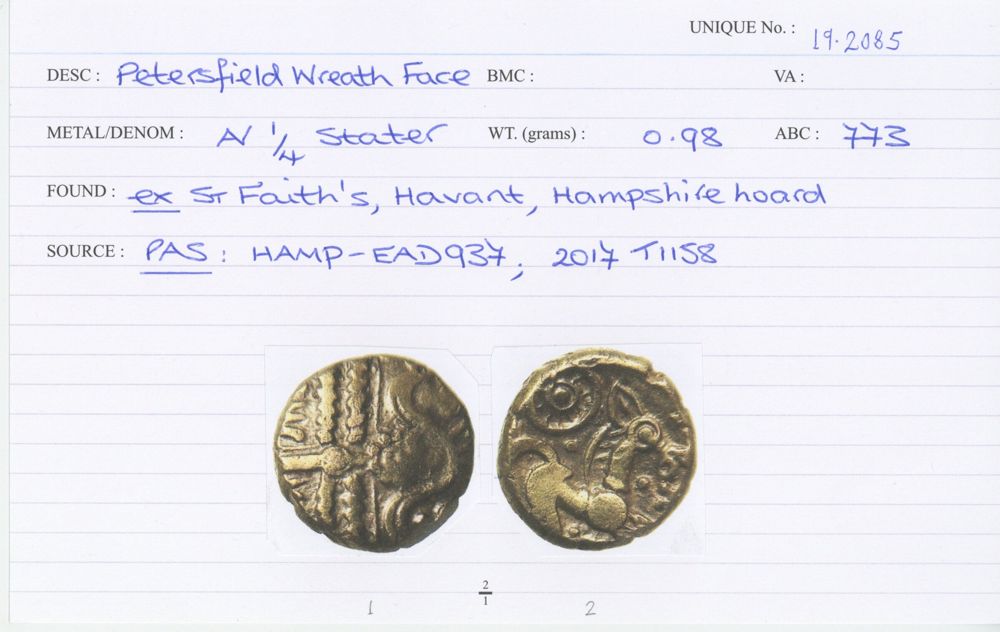 UNIQUE No. : 19.2085
DESC : Petersfield Wreath Face BMC : VA :
METAL/DENOM : AV 1/4 Stater WT. (grams) : 0.98 ABC : 773
FOUND : ex St Faith's, Havant, Hampshire hoard
SOURCE : PAS : HAMP-EAD937; 2017 T1158
2/1
1 2